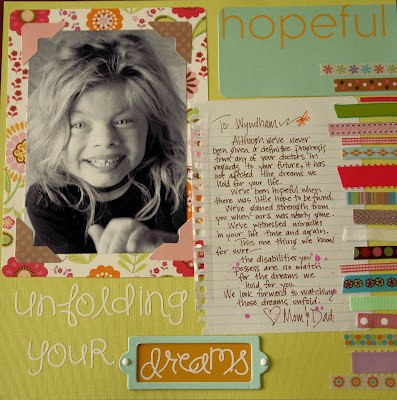 hopeful
To: Wyndham
Although we've never
been given a definitive prognosis
from any of your doctors in
regards to your future, it has
not affected the dreams we
hold for your life.
We've been hopeful when
there was little hope to be found.
We've gained strength from
you when ours was nearly gone.
We've witnessed miracles
in your life time and again.
This one thing we know
for sure—
the disabilities you
possess are no match
for the dreams we
hold for you.
We look forward to watching
those dreams unfold.
♡ Mom & Dad
unfolding
your
dreams